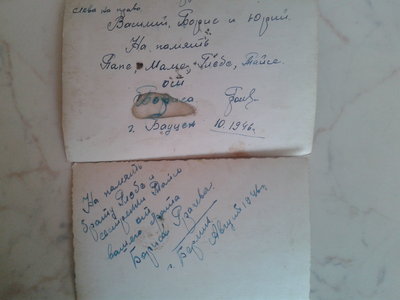 слева на право.
Василий, Борис и Юрий.
На память
Папе, Маме, Глебе, Тайсе.
от
Бориса
г. Бауцен 10.1946г.
На память
брату Глебе и
сестренки Тайсе
вашего от брата
Бориса
г. Берлин. Август 1946г.